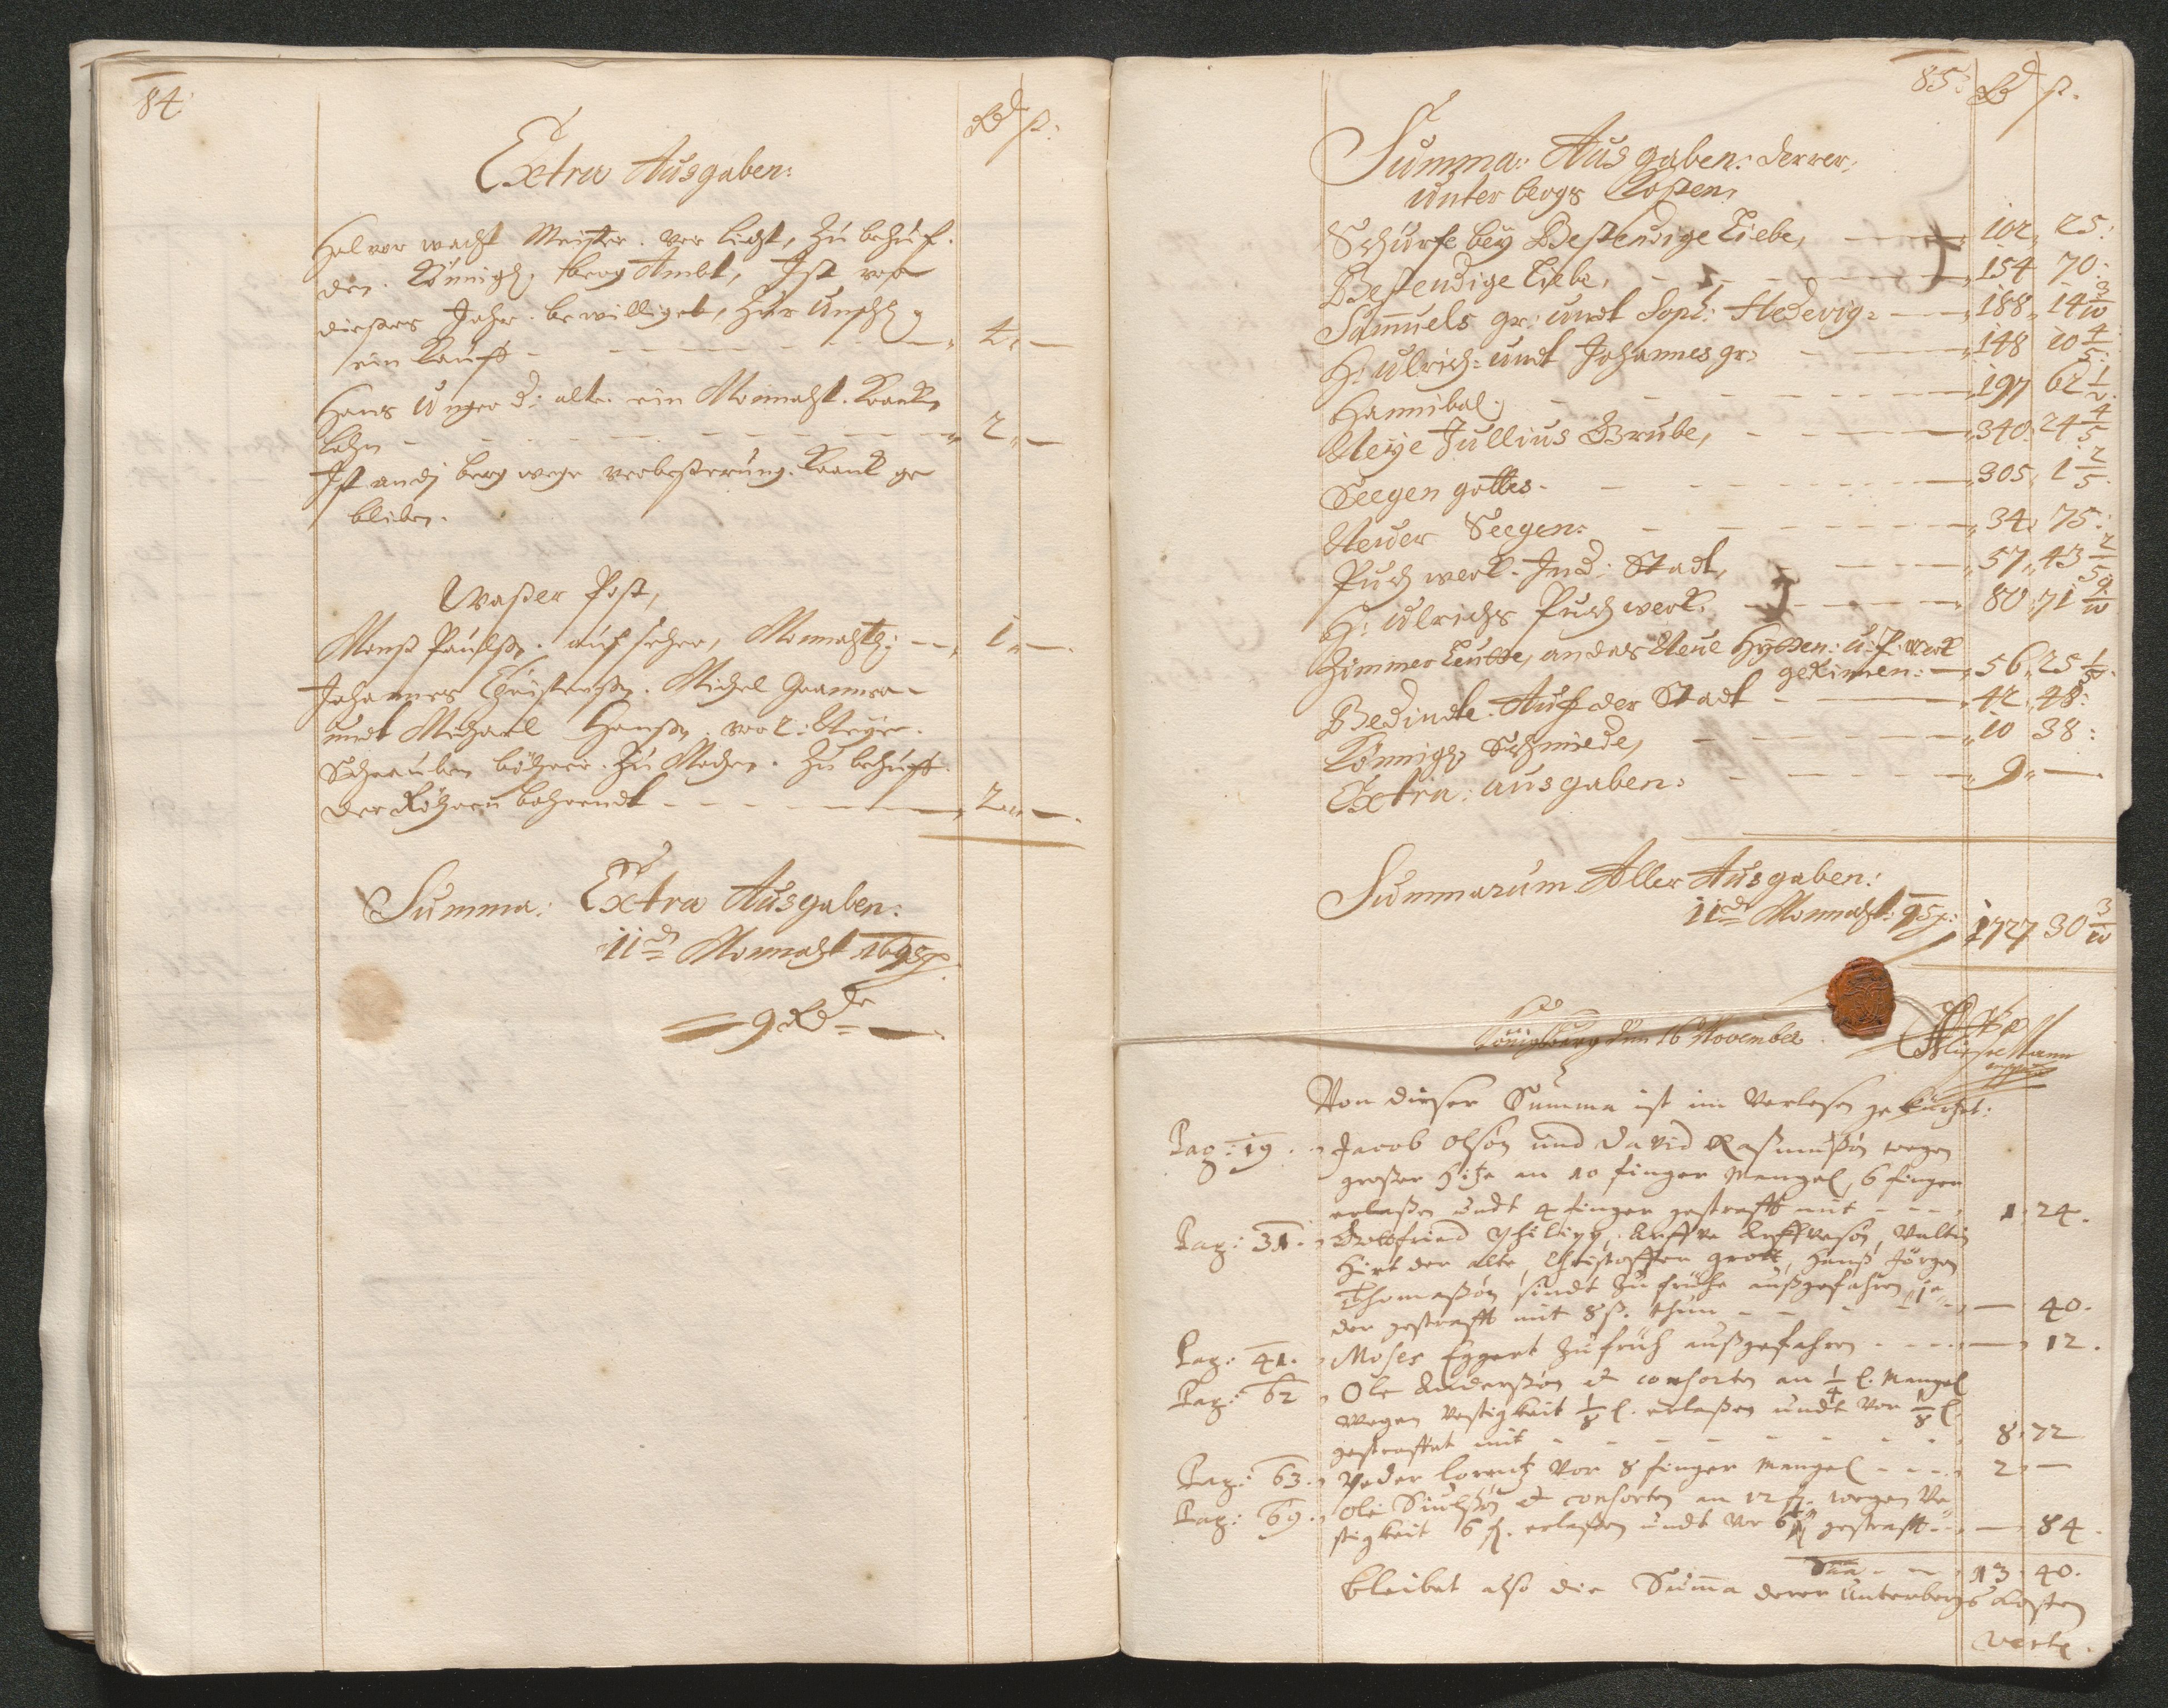 84.
Rd ß:
Extra Ausgaben:
Halvor wacht Meister. vor licht, Zu behuf.
den. Könnigl. berg Ambt, Ist vor
dießes Jahr. bewilliget, Zur Unschl
ein kauff - - - 4 „ —
Hans Unger d: alte. ein Monnaht. krank
lohn - - - 2 „ —
Ist an dj berg wege verbeßerung. krank ge
blieben.
Waßer Post,
Monß Paulß. aufseher, Monnahtl: — 1 „ —
Johannes Christenß. Michel
undt Michael Hanß. vor 2: Neye.
Schrauben böhrer. Zu Machen. Zu behuff.
der Röhren bohrendt - - - 2 „ —
Summa: Extra Ausgaben:
11d Monnaht 1695
9 Rdr —
85:
Rd ß.
Summa: Ausgaben: derrer,
unter bergs Kosten,
Schurfe bey Bestendige Liebe, — 102, 25:
Bestendige Liebe, - - - 154 70:
Sammuels gr: undt Soph: Hedevig: — 188, 14 3/10
H: Ulrich: undt Johannes gr: - - - 148 10 4/5:
Hannibal. - - - 197 62 1/2.
Neye Jullius Grube, - - - 340 24 4/5
Seegen gottes. - - - 305, 1 2/5.
Neuer Seegen: - - - 34: 75:
Puch werk. In d: Stadt, - - - 57, 43 2/5
H: Ulrichs Puch werk. - - - 80 71 9/10
Zimmer Leutte, an das Neue Hytten: u: P: werk
gekimen: — 56, 25 1/5.
Bedindte. Auf der Stadt - - - 42, 48:
Könnigl Schmiede, - - - 10 38:
Extra: ausgaben: - - - 9 „ —
Summarum Aller Ausgaben:
11d Monnaht: 95: 1727 30 3/10
Königsberg den 16 November
Von dieser Summa ist im Verlesen gekürtzt:
Pag: 19. „ Jacob Olsøn und David Rasmusßøn wegen
großer Hitze an 10 finger Mangel, 6 finger
erlaßen undt 4 finger gestrafft mit - - - 1. 24.
Pag: 31. „ Gottfried Philipp, Arffve Arffvesøn, Valtin
Hirt der alte, Christoffer Grott, Hanß Jörgen
Thomaßøn sindt zu frühe außgefahren, je
der gestrafft mit 8 ß. thun - - - — 40.
Pag: 41. „ Moses Eggert zu früh außgefahren - - - — 12.
Pag: 62 „ Ole Anderßøn et consorten an 1/4 l. Mangel
wegen Vestigkeit 1/8 l. erlaßen undt vor 1/8 l.
gestraffet mit - - - 8. 72
Pag: 63. „ Peder Lorentz vor 8 finger Mangel - - - 2. —
Pag: 69. „ Ole Siulßøn et consorten an 12 f. wegen Ve
stigkeit 6 f. erlaßen undt vor 6 f gestrafft - — 84.
Sua - - 13. 40.
bleibet also die Suma derer Unterbergs Kosten
verte.